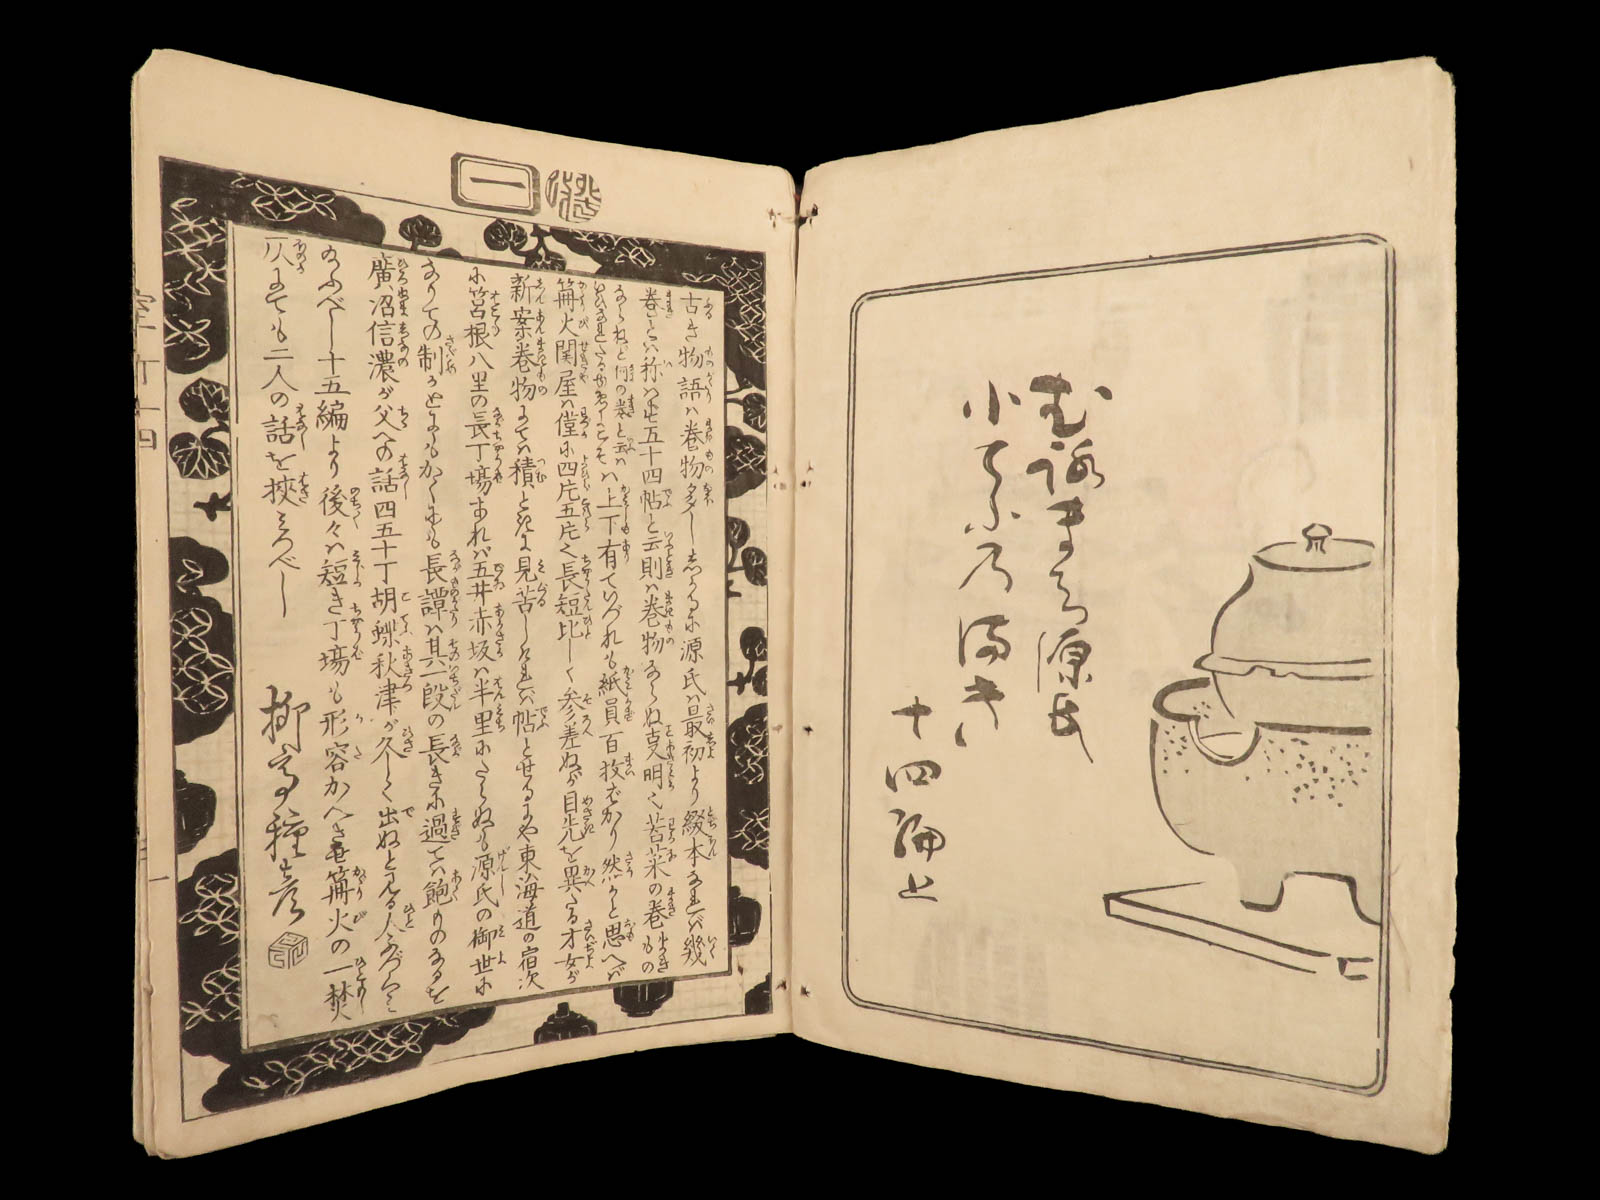 むろまち源氏
小てふ乃満き
十四編上
一
古き物語ハ巻物多ししかるに源氏ハ最初より綴本なれバ幾
巻とハ称ハず五十四帖と云則ハ巻物ならぬ明し苦菜の巻もの
ならねど何の巻と云ハ上下有ていづれも紙員百枚ばかり然かと思へバ
篝火関屋ハ僅に四片五片長短比しく参差ぬが目先を異たる才女が
新案巻物にてハ積ときに見苦しけれバ帖とせるにや東海道の宿次
に筥根八里の長丁場あれバ五井赤坂ハ半里にたらぬも源氏の御世に
ありての制かとにもかくにも長譚ハ其一段の長きに過てハ飽ものあるを
廣沼信濃が父への話四五十丁胡蝶秋津が久しく出ぬと見る人
給ふべし十五編より後々ハ短き丁場も形容かへき篝火の一焚
仄にても二人の話を挾ミつべし
柳亭種彦